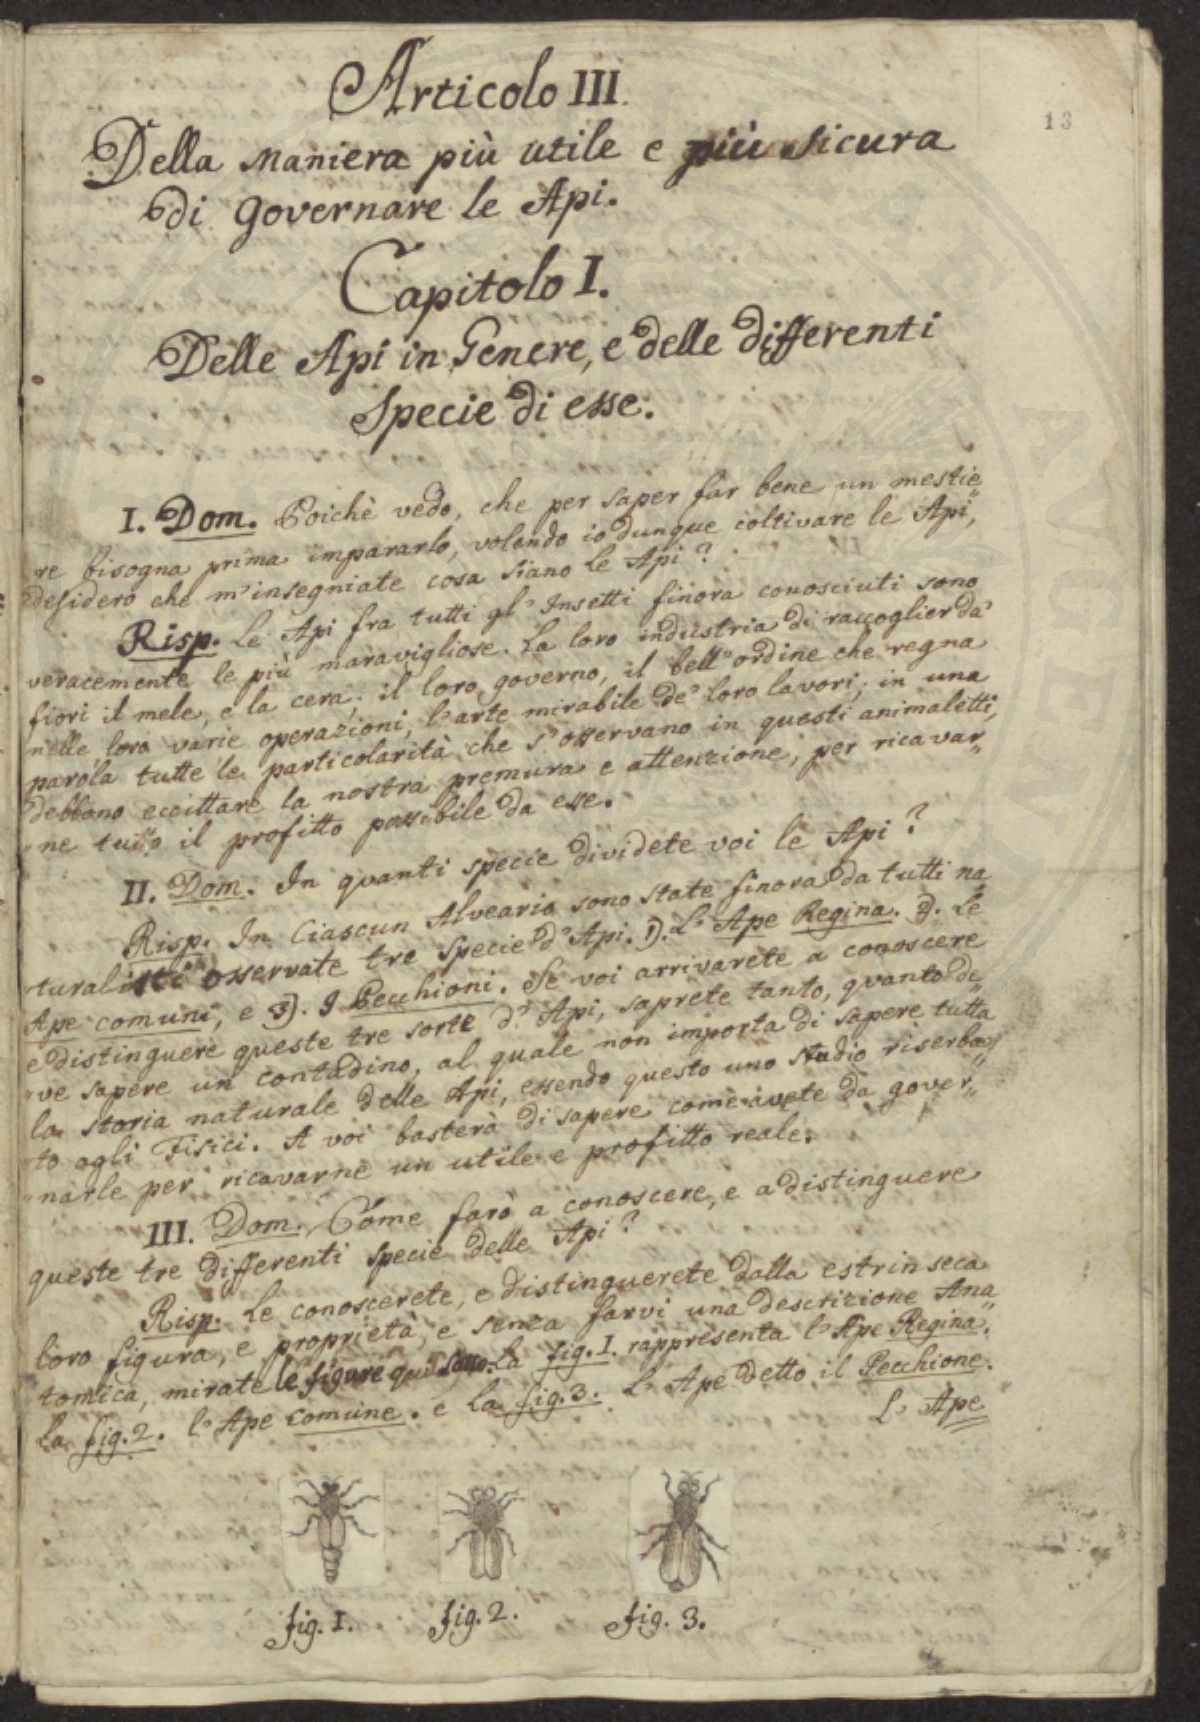 13
Articolo III.
Della maniera più utile e più sicura
di governare le Api.
Capitolo I.
Delle Api in Genere, e delle differenti
Specie di esse.
I. Dom. Poichè vedo, che per saper far bene un mestie„
re bisogna prima impararlo, volendo io dunque coltivare le Api,
desidero che m'insegniate cosa siano le Api?
Risp. Le Api fra tutti gl'Insetti finora conosciuti sono
veracemente le più maravigliose. La loro industria di raccoglier da'
fiori il mele, e la cera; il loro governo, il bell'ordine che regna
nelle loro varie operazioni, l'arte mirabile de' loro lavori; in una
parola tutte le particolarità che s'osservano in questi animaletti,
debbono eccittare la nostra premura e attenzione, per ricavar„
ne tutto il profitto possibile da esse.
II. Dom. In quanti specie dividete voi le Api?
Risp. In Ciascun Alveario sono state finora da tutti na„
turalisti osservate tre specie d'Api. 1). L'Ape Regina. 2). Le
Ape comuni, e 3). I Pecchioni. Se voi arrivarete a conoscere
e distinguere queste tre sorte d'Api, saprete tanto, quanto de„
ve sapere un contadino, al quale non importa di sapere tutta
la storia naturale delle Api, essendo questo uno studio riserba„
to agli Fisici. A voi basterà di sapere come avete da gover„
narle per ricavarne un utile e profitto reale.
III. Dom. Come farò a conoscere, e a distinguere
queste tre differenti specie delle Api?
Risp. Le conoscerete, e distinguerete dalla estrinseca
loro figura, e proprietà, e senza farvi una descrizione Ana„
tomica, mirate le figure qui sotto. La fig. I. rappresenta l'Ape Regina.
la fig. 2. l'Ape comune. e la fig. 3. l'Ape detto il Pecchione.
L'Ape
fig. I. fig. 2. fig. 3.